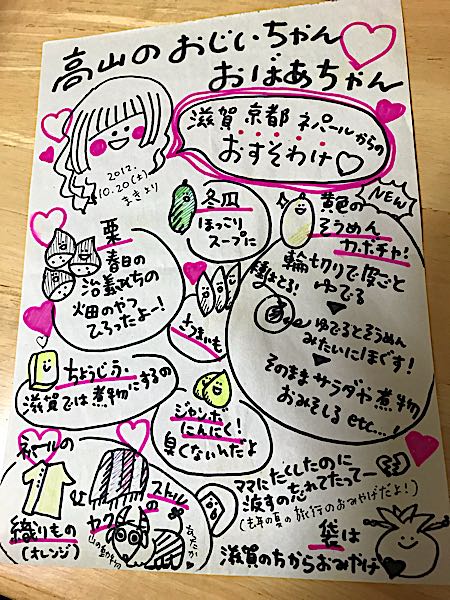 高山のおじいちゃん
おばあちゃん
滋賀 京都 ネパールからの
おすそわけ♡
2012.
10.20(土)
まきより
NEW
栗
春日の
治義んちの
畑のやつ
ひろったよー!
冬瓜
ほっこり
スープに
さつまいも
黄色の
そうめん
カボチャ!
輪切りで皮ごと
ゆでる
種はとる!
ゆでるとそうめん
みたいにほぐす!
そのままサラダや煮物
おみそしる etc…!
ちょうじふ
滋賀では煮物にするの
ジャンボ
にんにく!
臭くないんだよ
ネパールの
織りもの
(オレンジ)
ヤクの
ストール
山の動物
あったか
ママにたくしたのに
渡すの忘れてたってー
(去年の夏の旅行のおみやげだよ!)
袋は
滋賀の方からおみやげ